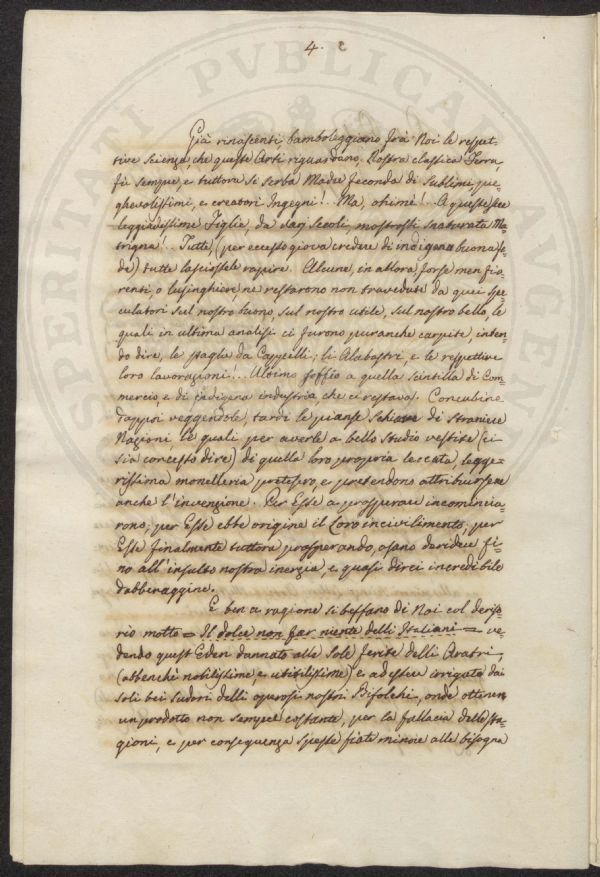 4.
Già rinascenti, bamboleggiano frà Noi le respet-
tive scienze, che queste Arti riguardano. Nostra classica Terra,
fù sempre, e tuttora si serba Madre feconda di Sublimi, pie-
ghevolissimi, e creatori Ingegni!.. Ma, ohimè!.. A queste sue
leggiadrissime Figlie, da varj secoli, mostrossi snaturata Ma-
trigna!.. Tutte, (per eccesso giova credere di indigena buona fe-
de) tutte lasciossele rapire. Alcune, in allora, forse men fio-
renti, o lusinghiere, ne restarono non travedute da quei spe-
culatori sul nostro buono, sul nostro utile, sul nostro bello, le
quali in ultima analisi ci furono pur anche carpite, inten-
do dire, le paglie da Cappelli; li Alabastri e le respettive
loro lavorazioni!.. Ultimo soffio a quella scintilla di Com-
mercio, e di indigena industria, che ci restava. Concubine
dappoi veggendole, tardi le pianse Schiave di straniere
Nazioni le quali per averle a bello studio vestite (ci
sia concesso dire) di quella loro propria leccata, legge-
rissima monelleria pretesero, e pretendono attribuirsene
anche l'invenzione. Per Esse a prosperare incomincia-
rono; per Esse ebbe origine il Loro incivilimento; per
Esse finalmente tuttora prosperando, osano deridere fi-
no all'insulto nostra inerzia, e quasi direi incredibile
dabbenaggine.
E ben a ragione si beffano di Noi col deriso-
rio motto = Il dolce non far niente delli Italiani = ve-
dendo quest'Eden dannato alle sole ferite delli Aratri,
(abbenchè nobilissime, e utilissime) e adesso irrigato dai
soli bei sudori delli operosi nostri Bifolchi, onde ottenere
un prodotto non sempre costante, per la fallacia delle sta-
gioni, e per conseguenza spesse fiate minore alle bisogna
PUBLICAE